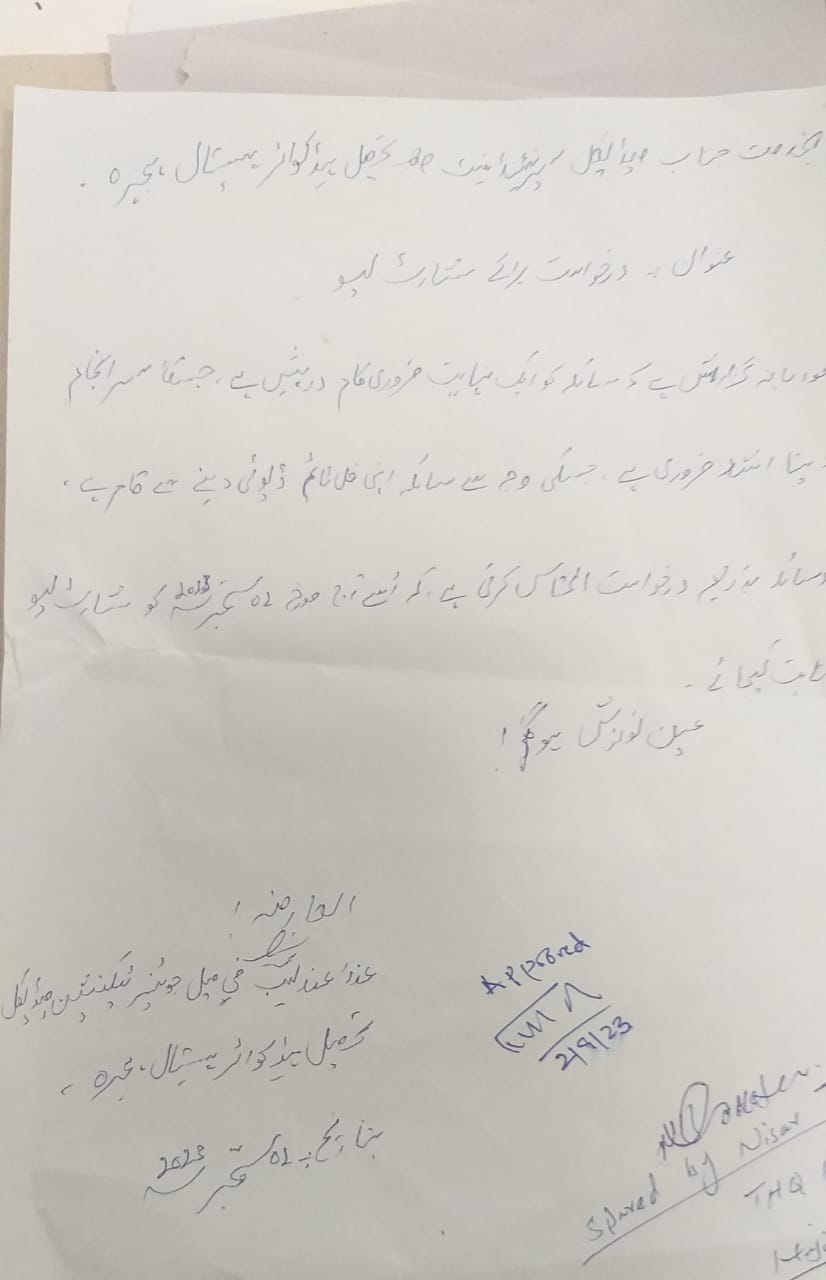 بخدمت جناب میڈیکل سپرنٹنڈینٹ صاحب تحصیل ہیڈکوائر ہسپتال ہجیرہ ۔
عنوان :۔ درخواست برائے شارٹ لیو
مودبانہ گزارش ہے کہ سائلہ کو ایک نہایت ضروری کام درپیش ہے، جسکا سرانجام
دینا اشد ضروری ہے، جسکی وجہ سے سائلہ اپنی فل ٹائم ڈیوٹی دینے سے قاصر ہے،
سائلہ بذریعہ درخواست التماس کرتی ہے، کہ اُسے آج مورخہ 02 ستمبر 2023 کو شارٹ لیو
کیجائے ۔
عین نوازش ہوگی!
العارضہ!
عذرا عندلیب فی میل جونیئر ٹیکنیشن میڈیکل
تحصیل ہیڈکوائر ہسپتال، ہجیرہ ۔
بتاریخ :۔ 02 ستمبر 2023
Approved
2/9/23
Spared by Nisar
THQ